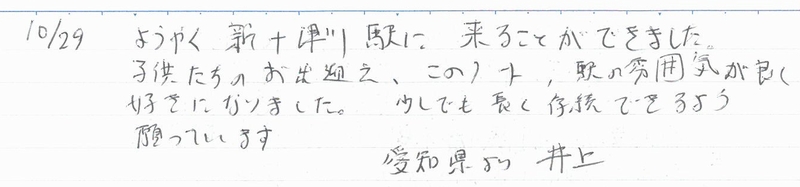 10/29 ようやく 新十津川駅に 来ることができました。
子供たちのお出迎え、このノート、駅の雰囲気が良く
好きになりました。 少しでも長く存続できるよう
願っています
愛知県より 井上